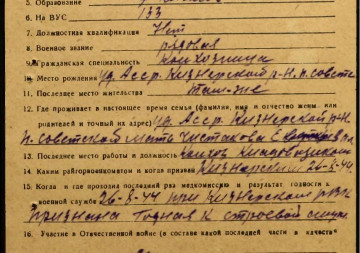 5. Образование
6. На ВУС 133
7. Должностная квалификация Нет
8. Военное звание рядовая
9. Гражданская специальность Колхозница
10. Место рождения Уд. Асср. Кизнерский р-н. п. совете
11. Последнее место жительства там-же
12. Где проживает в настоящее время семья (фамилия, имя и отчество жены или
родителей и точный их адрес) уд. Асср Кизнерский р-н
п. советской мать Чистакова Е
13. Последнее место работы и должность колхоз
14. Каким райгорвоенкоматом и когда призван Кизнерский 26-8-44
15. Когда и где проходил последний раз медкомиссию и результат годности к
военной службе 26-8-44 при Кизнерском рвк
признана годная к строевой службе
16. Участие в Отечественной войне (в составе какой последней части и в качестве